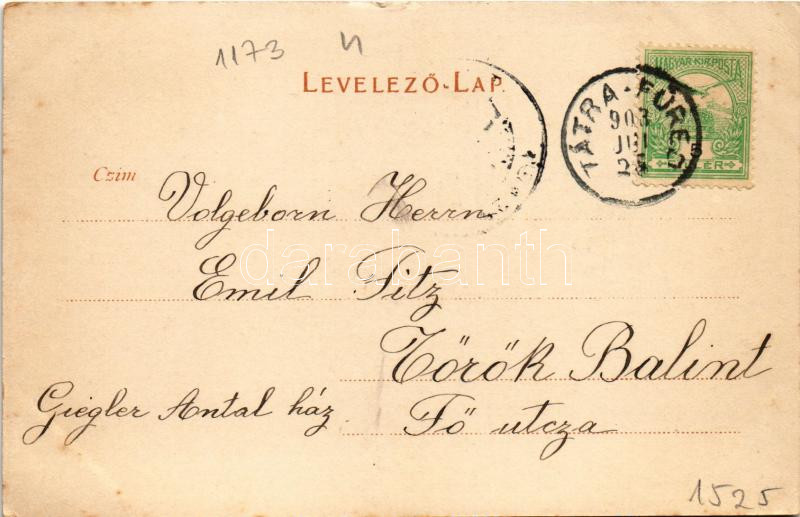 1173 И
LEVELEZŐ-LAP
MAGYAR·KIR·POSTA
TÁTRA-FÜRED
903
JUL
25
Czím
Volgeborn Herrn
Emil Titz
Török Balint
Giegler Antal ház Fő utcza
darabanth
1525